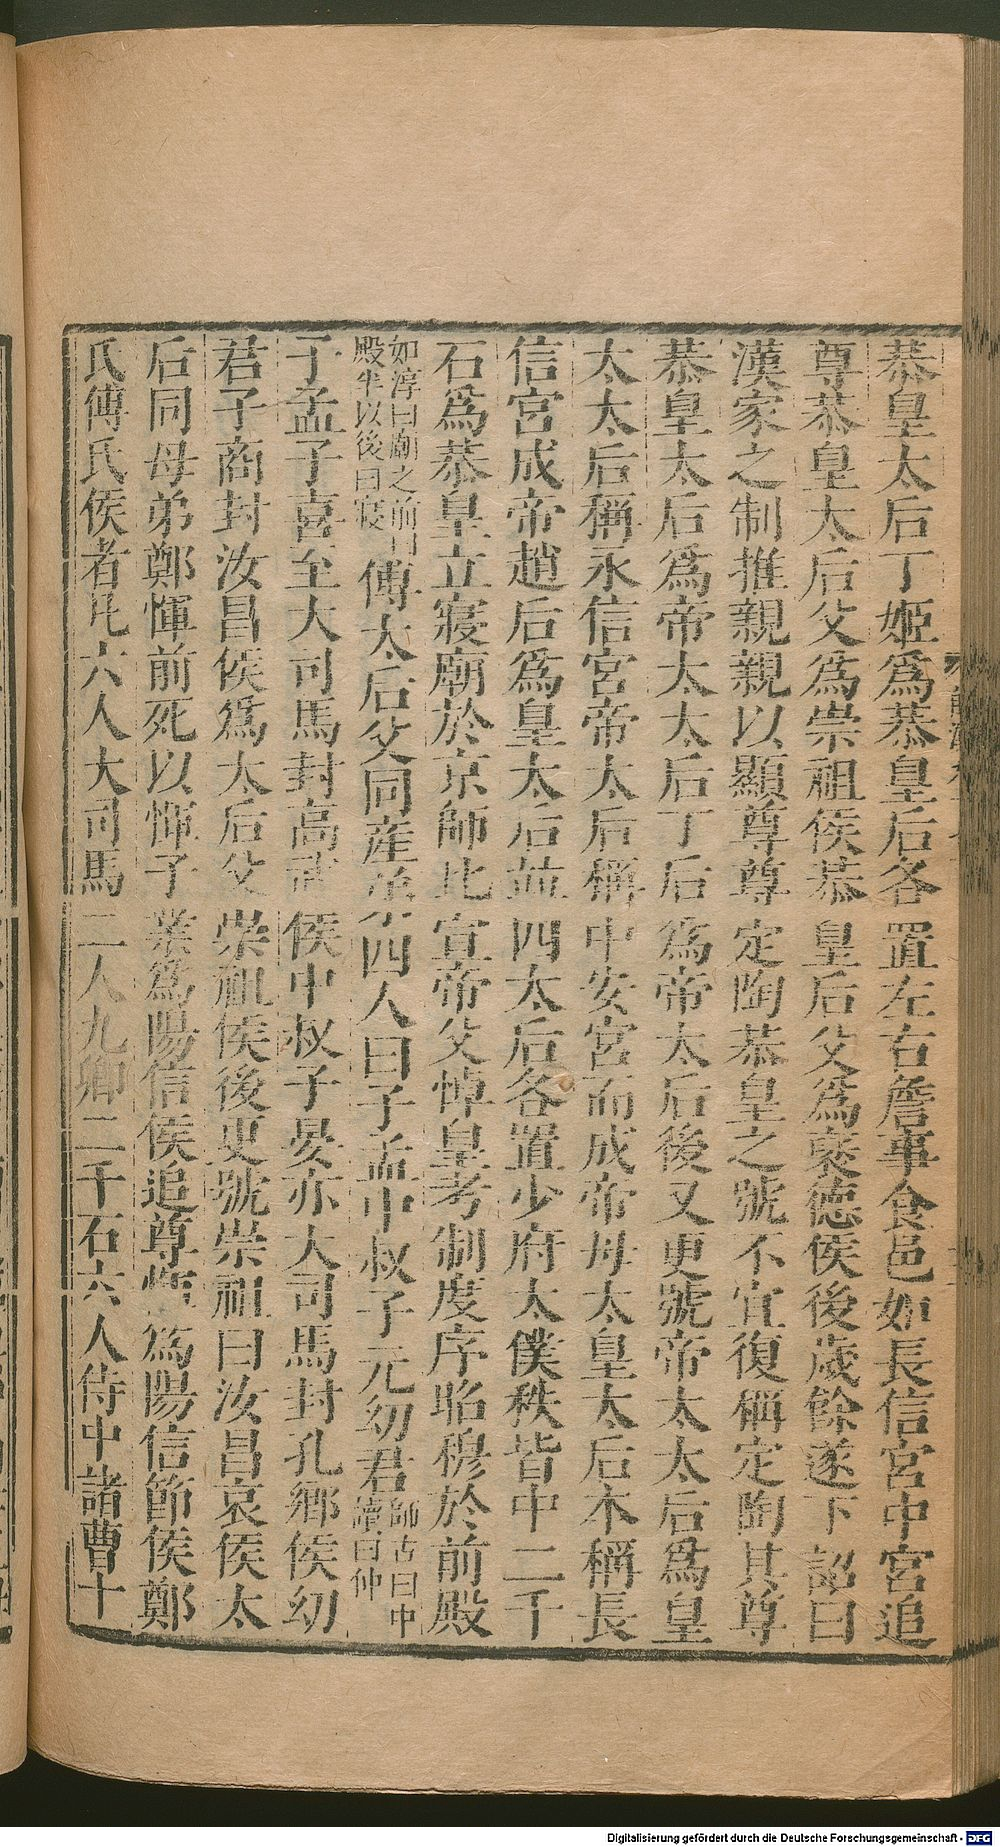 恭皇太后丁姬爲恭皇后各置左右詹事食邑如長信宮中宮追
尊恭皇太后父爲崇祖侯恭皇后父爲襃德侯後歲餘遂下詔曰
漢家之制推親親以顯尊尊定陶恭皇之號不宜復稱定陶其尊
恭皇太后爲帝太太后丁后爲帝太后後又更號帝太太后爲皇
太太后稱永信宮帝太后稱中安宮而成帝母太皇太后本稱長
信宮成帝趙后爲皇太后並四太后各置少府太僕秩皆中二千
石爲恭皇立寢廟於京師比宣帝父悼皇考制度序昭穆於前殿
如淳曰廟之前曰殿半以後曰寢傅太后父同產弟四人曰子孟中叔子元幼君師古曰中讀曰仲
子孟子喜至大司馬封高武侯中叔子晏亦大司馬封孔鄉侯幼
君子商封汝昌侯爲太后父崇祖侯後更號崇祖曰汝昌哀侯太
后同母弟鄭惲前死以惲子業爲陽信侯追尊惲爲陽信節侯鄭
氏傅氏侯者凡六人大司馬二人九卿二千石六人侍中諸曹十
Digitalisierung gefördert durch die Deutsche Forschungsgemeinschaft - DFG